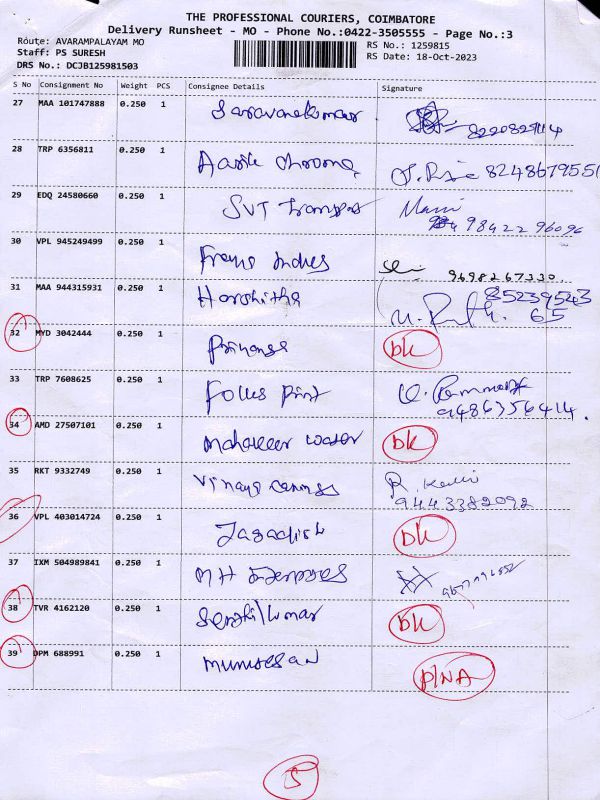 THE PROFESSIONAL COURIERS, COIMBATORE
Delivery Runsheet - MO - Phone No.:0422-3505555 - Page No.:3
Route: AVARAMPALAYAM MO
RS No.: 1259815
Staff: PS SURESH
RS Date: 18-Oct-2023
DRS No.: DCJB125981503
S No Consignment No Weight PCS Consignee Details Signature
27 MAA 101747888 0.250 1 Saravanakumar
28 TRP 6356811 0.250 1
29 EDQ 24580660 0.250 1 SVT Transport Mani
98422 96096
30 VPL 945249499 0.250 1
9698267330
31 MAA 944315931 0.250 1 Harshitha 85239543
65
32 MYD 3042444 0.250 1 Priyanga DL
33 TRP 7608625 0.250 1 Follus Print
9486756414
34 AMD 27507101 0.250 1 Mahaveer Water DL
35 RKT 9332749 0.250 1
9443382092
36 VPL 403014724 0.250 1 Jagadish DL
37 IXM 504989841 0.250 1
38 TVR 4162120 0.250 1 Senthilkumar DL
39 DPM 688991 0.250 1 Murugesan P/NA
5